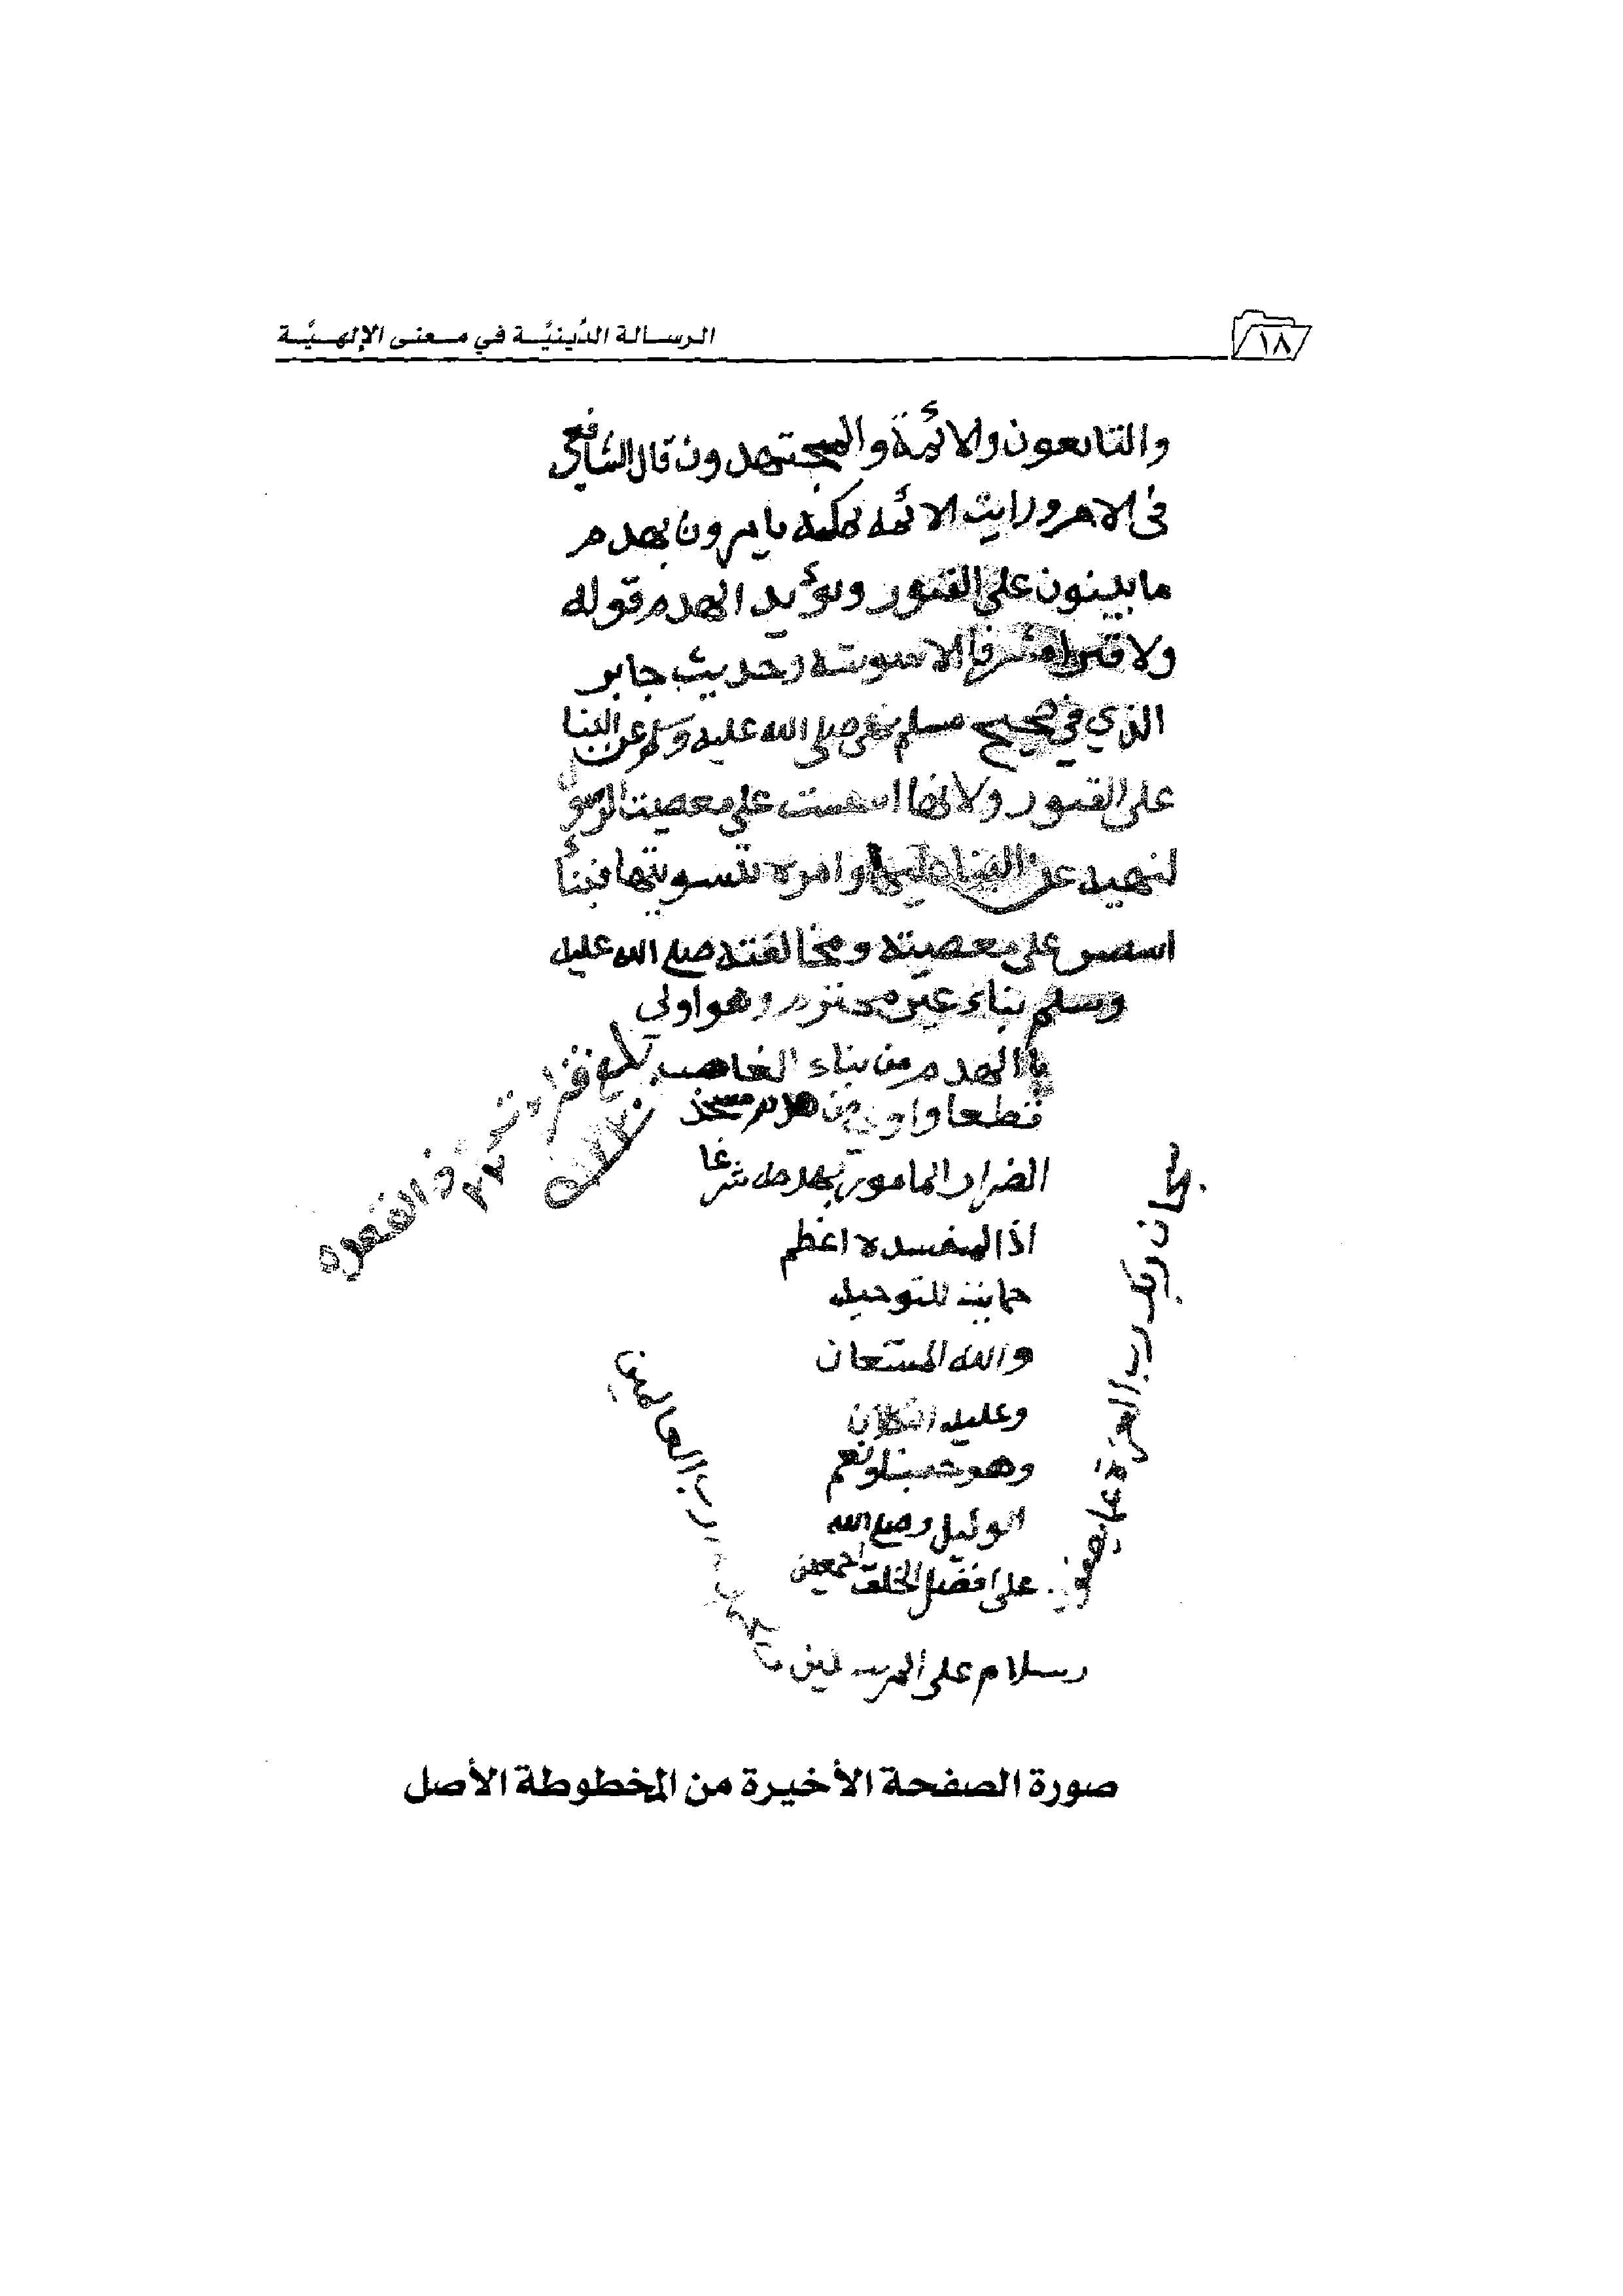 ١٨
الرسالة الدِّينيَّة في معنى الإلهيَّة
والتابعون والائمة والمجتهدون قال الشافعي
في الام ورايت الائمه بمكة يامرون بهدم
ما يبنون على القبور ويؤيد الهدم قوله
ولا قبرا مشرفا الا سويته وحديث جابر
الذي في صحيح مسلم نهى صلى الله عليه وسلم عن البنا
على القبور ولانها اسست على معصيت الرسول
لنهيه عن البنا عليها وامره بتسويتها فبنأ
اسس على معصيته ومخالفته صلى الله عليه
وسلم بناء غير محترم وهو اولى
باالهدم من بناء الغاصب
قطعا واولى من هدم مسجد
الضرار المامور بهدمه شرعا
اذ المفسده اعظم
حماية للتوحيد
والله المستعان
وعليه التكلان
وهو حسبنا ونعم
الوكيل وصلى الله
على افضل الخلق اجمعين
سبحان ربك رب العزة عما يصفون
وسلام على المرسلين
رب العالمين
القعده
صورة الصفحة الأخيرة من المخطوطة الأصل